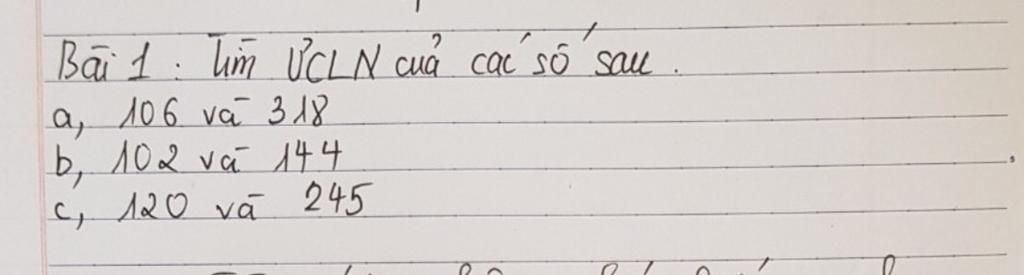 Bài 1: Tìm ƯCLN của các số sau.
a, 106 và 318
b, 102 và 144
c, 120 và 245